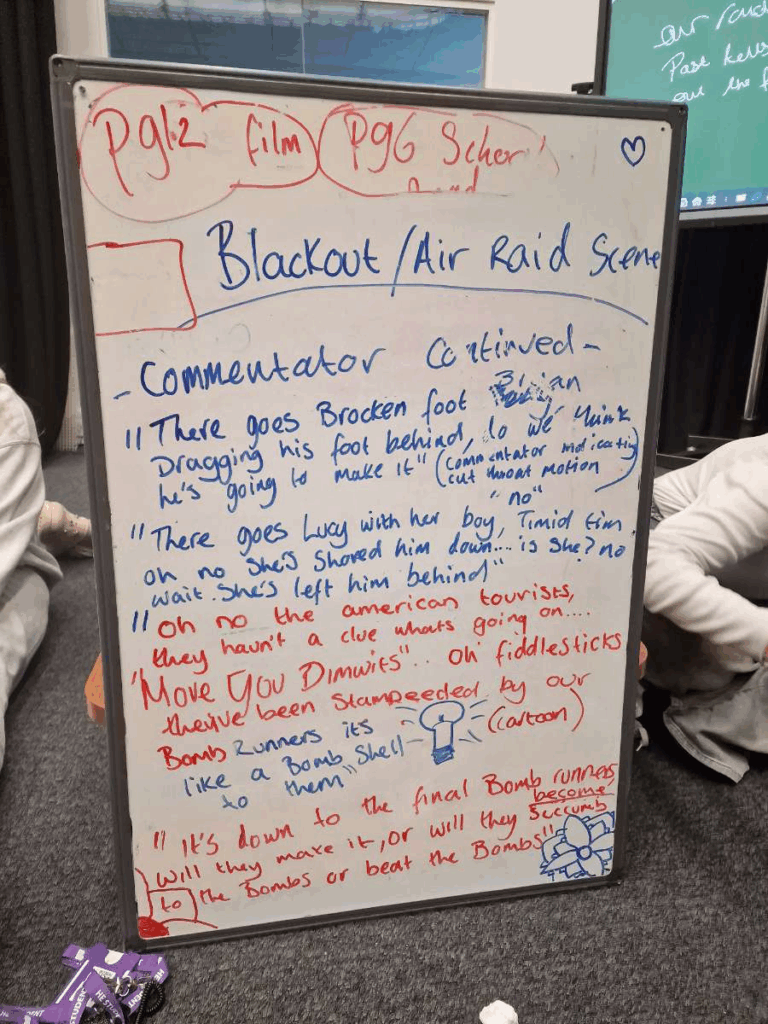 Pg12 film
Pg6
Blackout/Air Raid Scene
- Commentator Continued -
"There goes Brocken foot Brian
Dragging his foot behind, do we think
he's going to make it" (commentator indicating
cut throat motion)
"no"
"There goes Lucy with her boy, Timid tim,
oh no she's shoved him down.... is she? no
wait. She's left him behind"
"Oh no the american tourists,
they havn't a clue whats going on....
"Move You Dimwits".. oh fiddlesticks
they've been stampeeded by our
Bomb Runners its
like a Bomb Shell
to them" (cartoon)
"It's down to the final Bomb runners,
become
will they make it, or will they Succumb
to the Bombs or beat the Bombs"
air raid
Past
our the
STUDENT
HE STUDENT